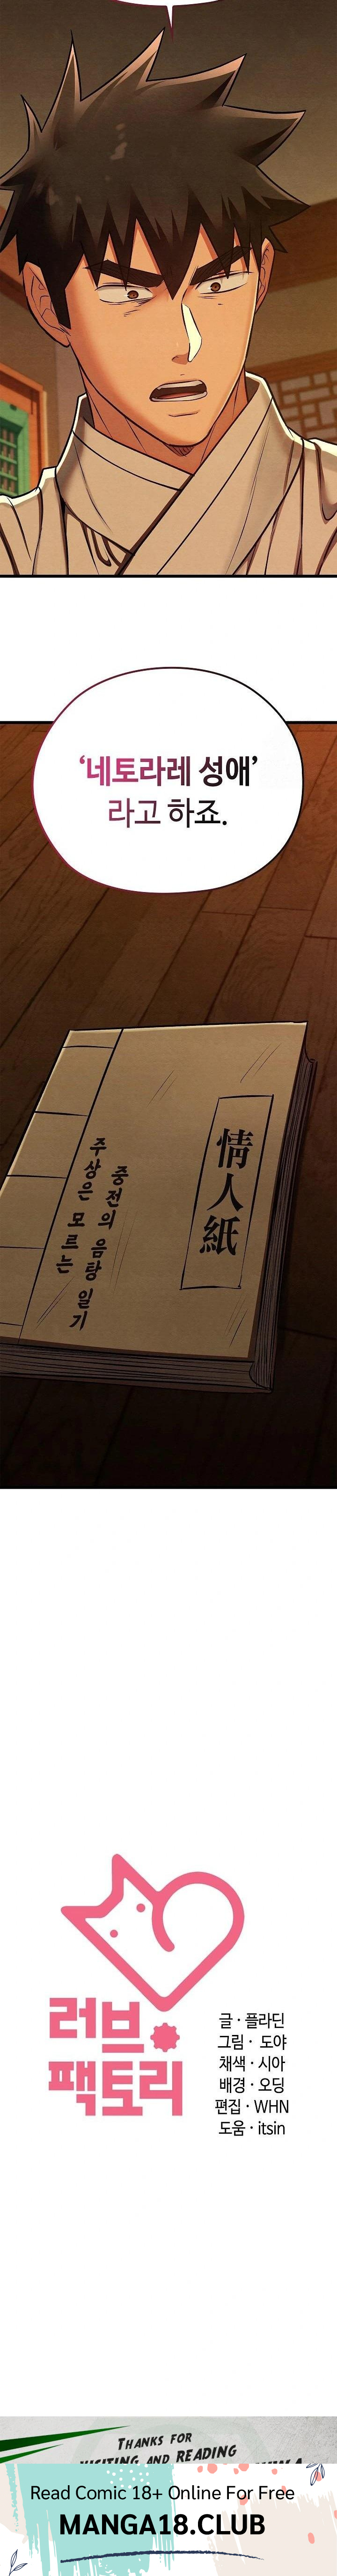 ‘네토라레 성애’
라고 하죠.
情人紙
중전의 음탕 일기
주상은 모르는
러브
팩토리
글 · 플라딘
그림 · 도야
채색 · 시아
배경 · 오딩
편집 · WHN
도움 · itsin
THANKS FOR
VISITING AND READING
Read Comic 18+ Online For Free
MANGA18.CLUB